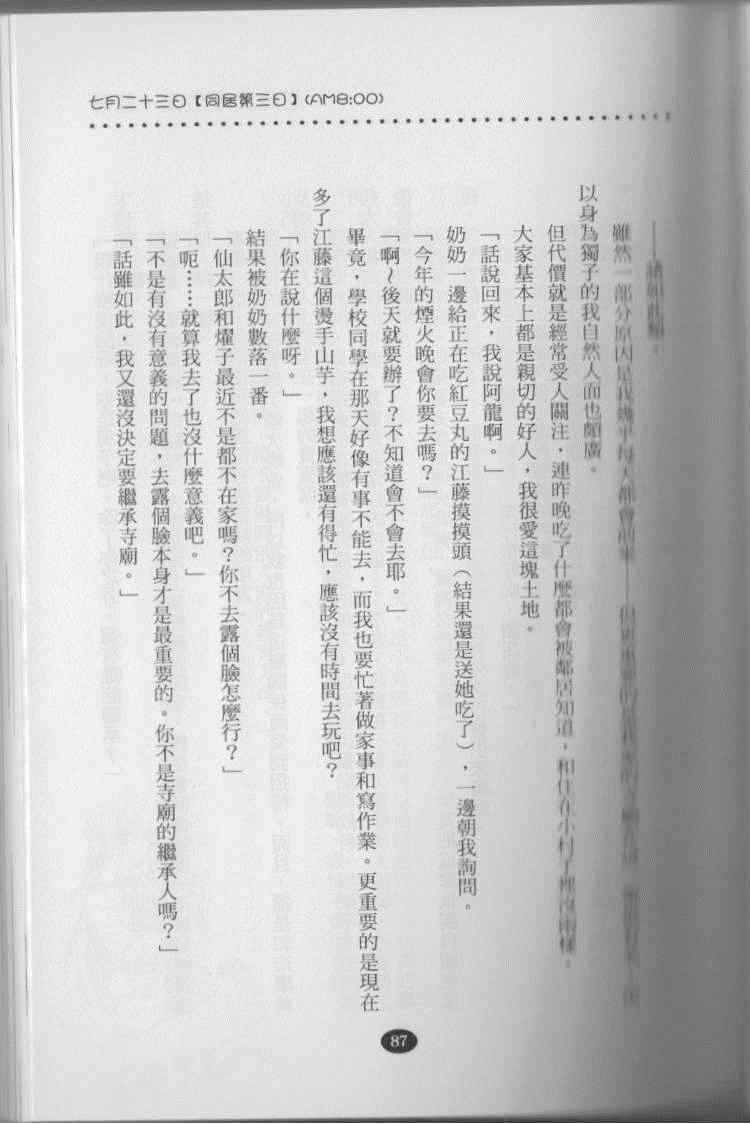 七月二十三日【同居第三日】(AM8:00)
雖然一部分原因是我幾乎每人都會
以身為獨子的我自然人面也頗廣。
但代價就是經常受人關注，連昨晚吃了什麼都會被鄰居知道，和住在小村子裡沒兩樣。
大家基本上都是親切的好人，我很愛這塊土地。
「話說回來，我說阿龍啊。」
奶奶一邊給正在吃紅豆丸的江藤摸摸頭（結果還是送她吃了），一邊朝我詢問。
「今年的煙火晚會你要去嗎？」
「啊～後天就要辦了？不知道會不會去耶。」
畢竟，學校同學在那天好像有事不能去，而我也要忙著做家事和寫作業。更重要的是現在
多了江藤這個燙手山芋，我想應該還有得忙，應該沒有時間去玩吧？
「你在說什麼呀。」
結果被奶奶數落一番。
「仙太郎和燿子最近不是都不在家嗎？你不去露個臉怎麼行？」
「呃……就算我去了也沒什麼意義吧。」
「不是有沒有意義的問題，去露個臉本身才是最重要的。你不是寺廟的繼承人嗎？」
「話雖如此，我又還沒決定要繼承寺廟。」
87